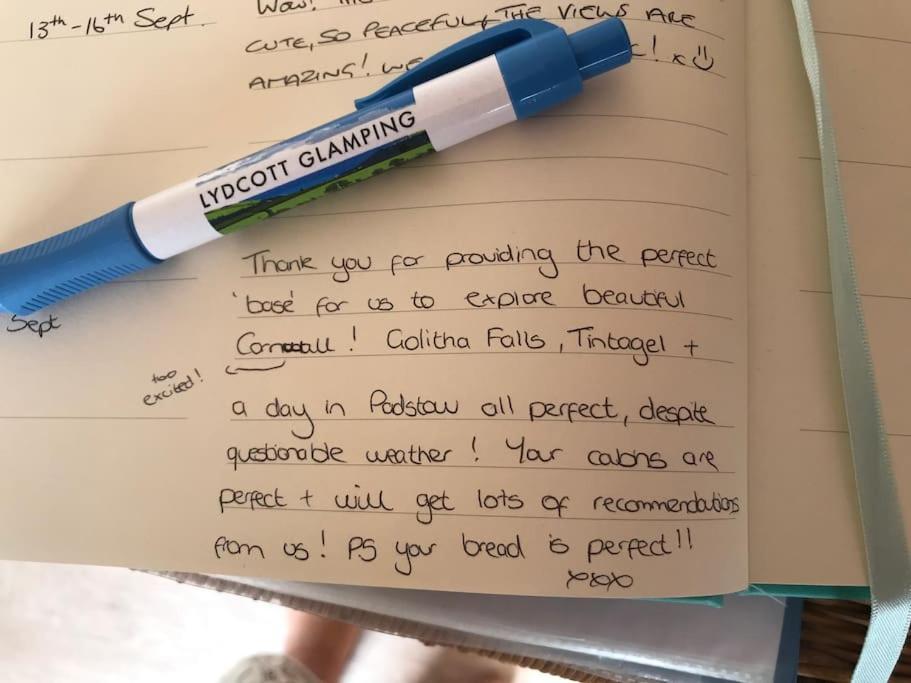 13th-16th Sept.
Wow!
CUTE, SO PEACEFUL + THE VIEWS ARE
AMAZING! WE ! x
LYDCOTT GLAMPING
Sept
Thank you for providing the perfect
'base' for us to explore beautiful
Cornwall! Golitha Falls, Tintagel +
too
excited!
a day in Padstow all perfect, despite
questionable weather! Your cabins are
perfect + will get lots of recommendations
from us! PS your bread is perfect!!
xoxo